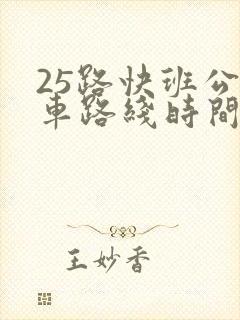 25路快班公
車路綫時間
王妙香